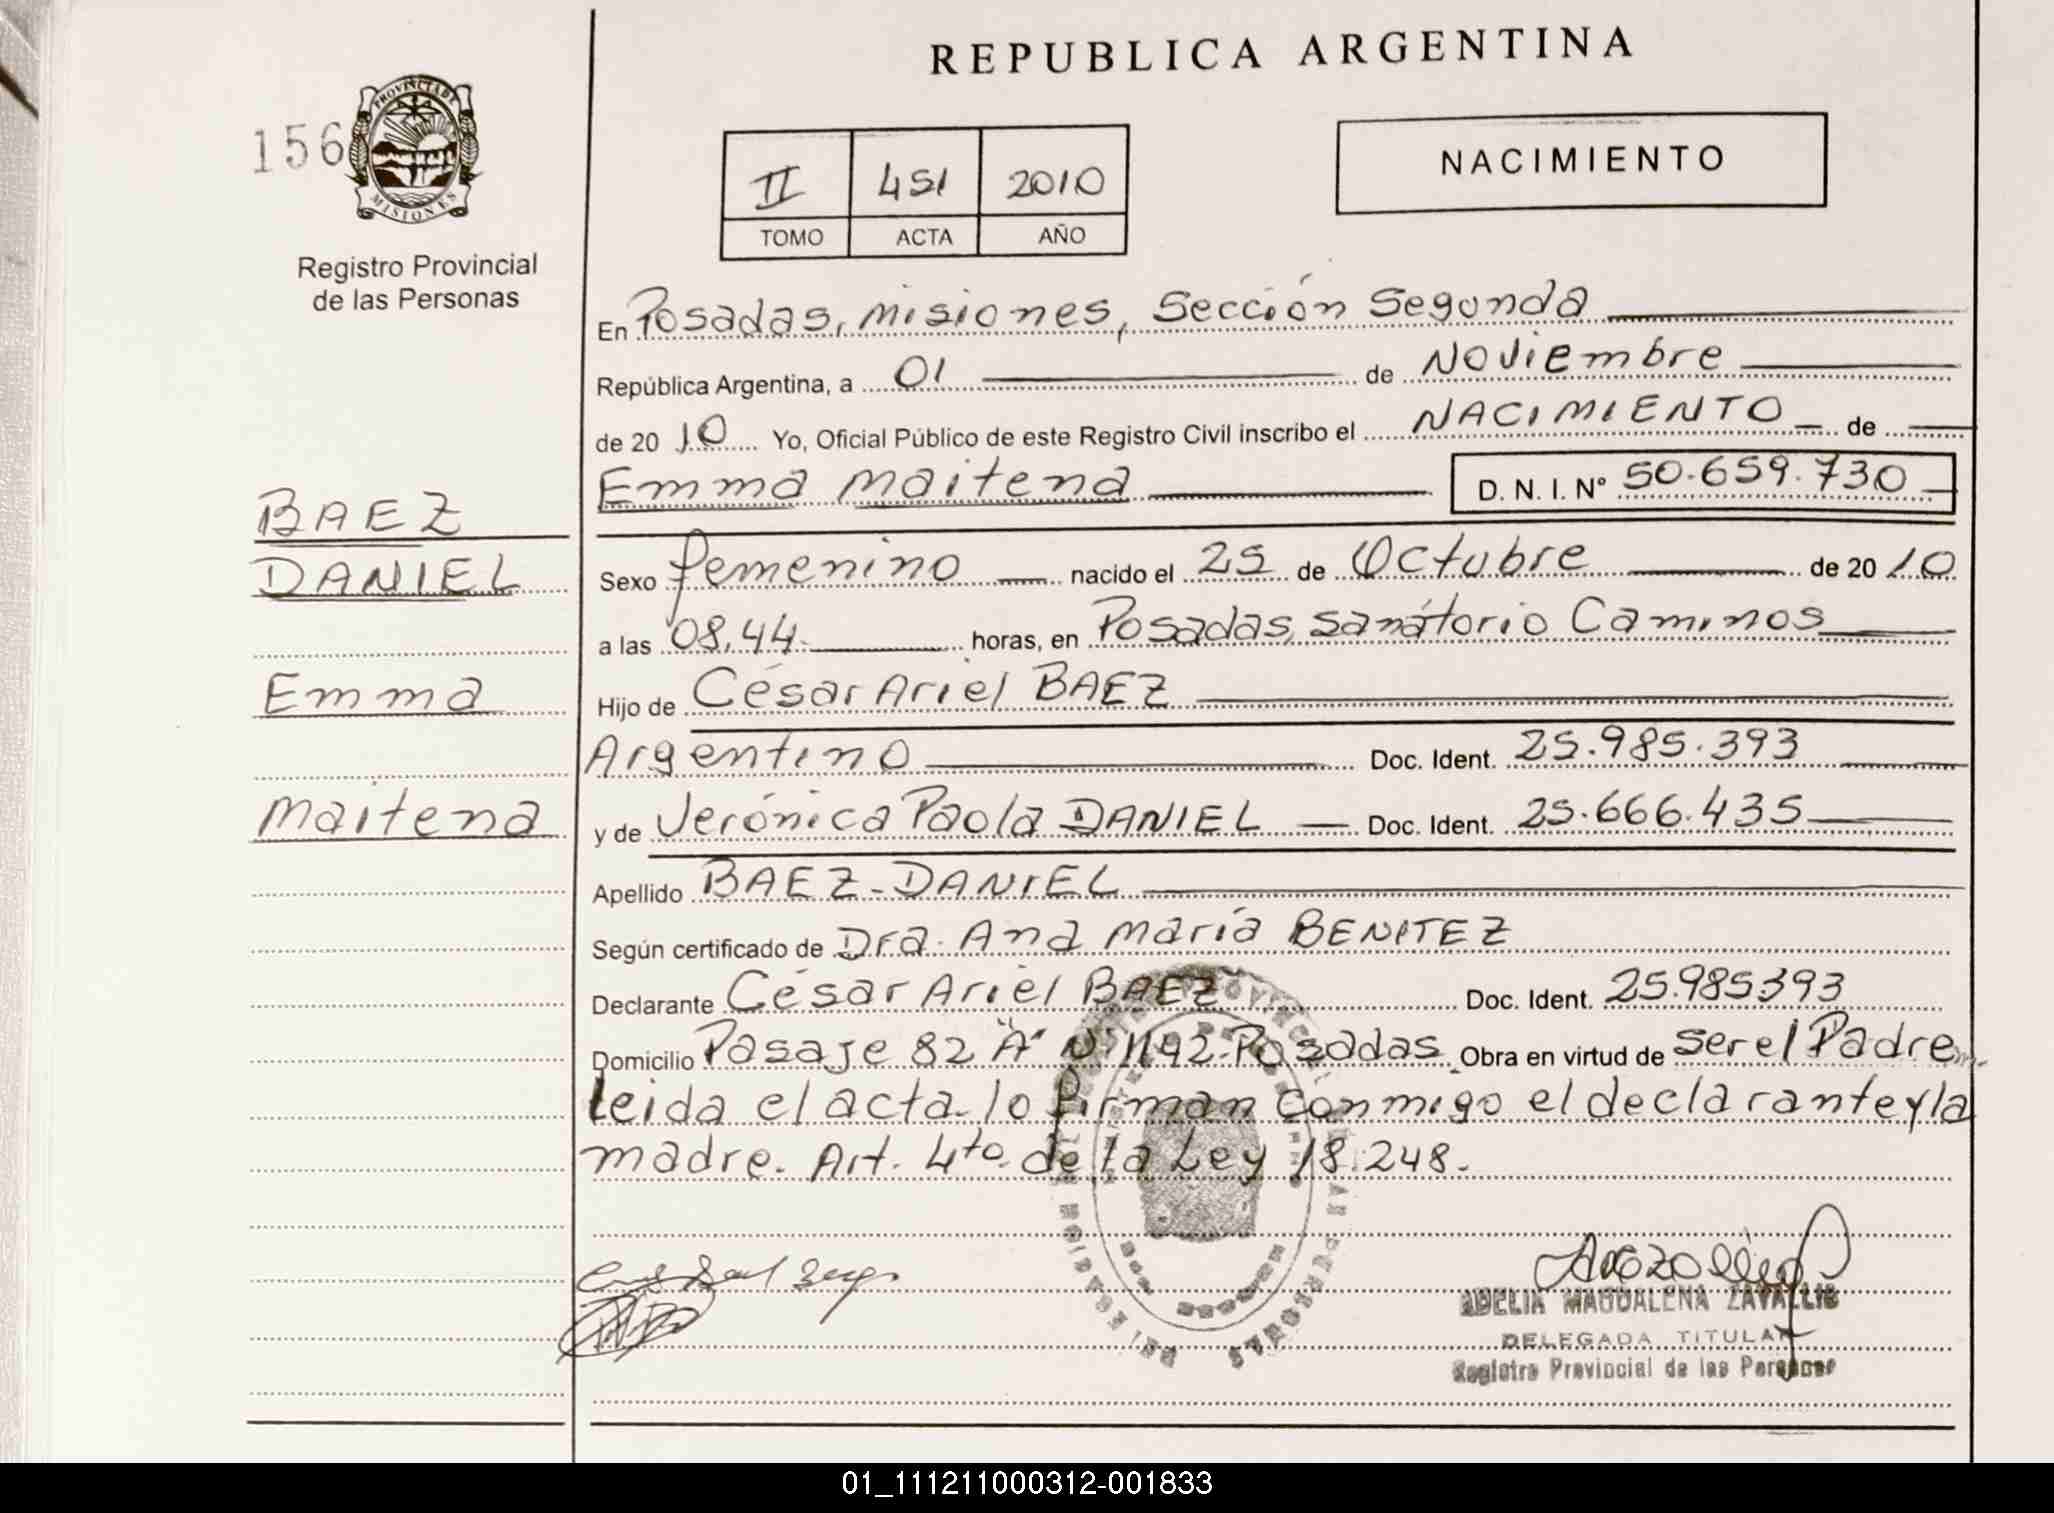 REPUBLICA ARGENTINA
156
PROVINCIA DE
MISIONES
Registro Provincial
de las Personas
II 451 2010
TOMO ACTA AÑO
NACIMIENTO
En Posadas, Misiones, Sección Segunda
República Argentina, a 01 de Noviembre
de 2010 Yo, Oficial Público de este Registro Civil inscribo el NACIMIENTO de
Emma Maitena D. N. I. Nº 50.659.730
BAEZ
DANIEL
Emma
Maitena
Sexo femenino nacido el 25 de Octubre de 2010
a las 08,44 horas, en Posadas, Sanatorio Caminos
Hijo de César Ariel BAEZ
Argentino Doc. Ident. 25.985.393
y de Verónica Paola DANIEL Doc. Ident. 25.666.435
Apellido BAEZ-DANIEL
Según certificado de Dra. Ana María BENITEZ
Declarante César Ariel BAEZ Doc. Ident. 25.985393
Domicilio Pasaje 82 "A" Nº 1192-Posadas. Obra en virtud de ser el Padre
Leida el acta lo firman conmigo el declarante y la
madre. Art. 4to. de la Ley 18.248.
ADELIA MAGDALENA ZAVALLIS
DELEGADA TITULAR
Registro Provincial de las Personas
01_111211000312-001833